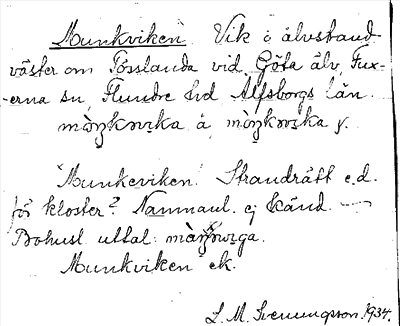 Munkviken. Vik i älvstrand
väster om Torslanda vid Göta älv, Fux-
-erna sn, Flundre hd Älfsborgs län.
å, y.
"Munkeviken." Strandrätt e.d.
för kloster? Namnanl. ej känd.
Bohusl uttal:
Munkviken ek.
L. M. Svenungsson 1934.